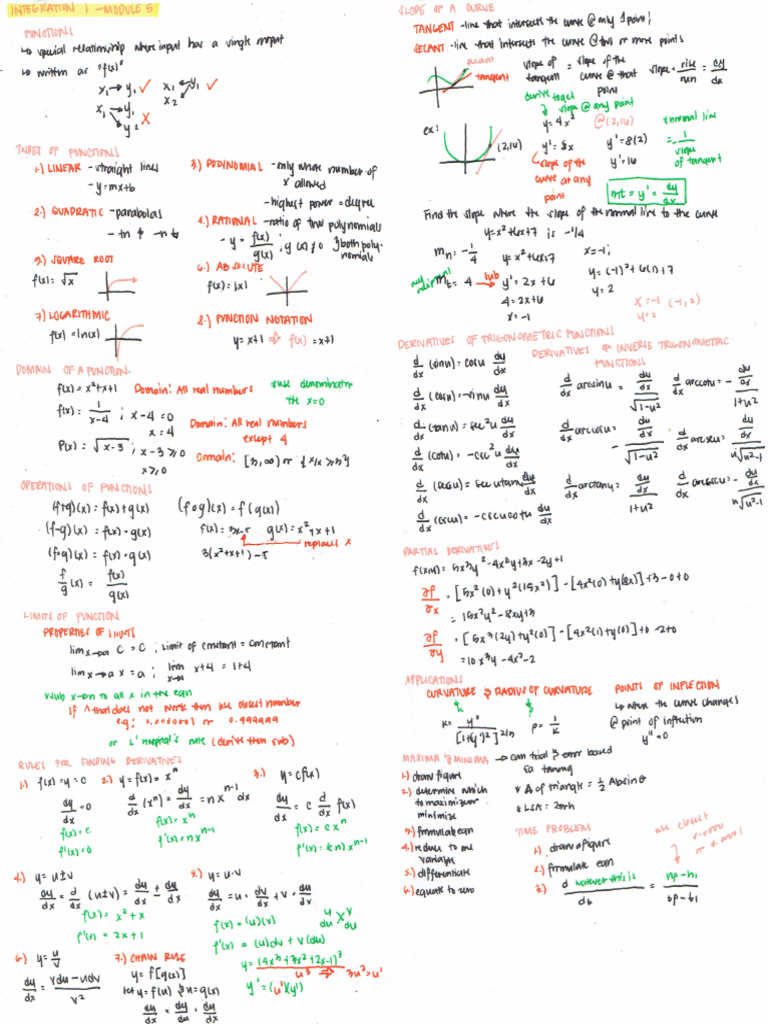 INTEGRATION 1 - MODULE 5
FUNCTIONS
↳ special relationship where input has a single output
↳ written as "f(x)"
x₁ → y₁ ✓ x₁ → y₁ ✓
x₂
x₁ → y₁
y₂ X
TYPES OF FUNCTIONS
1.) LINEAR - straight lines
- y=mx+b
2.) QUADRATIC - parabolas
3) POLYNOMIAL - only whole number of
x allowed
- highest power = degree
4.) RATIONAL - ratio of two polynomials
- y = f(x)/g(x) ; g(x) ≠ 0 } both poly-
nomials
5.) SQUARE ROOT
f(x) = √x
6.) ABSOLUTE
f(x) = |x|
7) LOGARITHMIC
f(x) = ln(x)
8.) FUNCTION NOTATION
y = x+1 ⇒ f(x) = x+1
DOMAIN OF A FUNCTION
f(x) = x²+x+1 Domain: All real numbers
*use denominator
the x=0
f(x) = 1/x-4 ; x-4=0
x=4
Domain: All real numbers
except 4
f(x) = √x-3 ; x-3≥0
x≥0
Domain: [3,∞) or {x|x≥3}
OPERATIONS OF FUNCTIONS
(f+g)(x) = f(x)+g(x)
(f-g)(x) = f(x)-g(x)
(f•g)(x) = f(x)•g(x)
f/g (x) = f(x)/g(x)
(fog)(x) = f(g(x))
f(x) = 3x-5 g(x) = x²+x+1
replace x
3(x²+x+1)-5
LIMITS OF FUNCTION
PROPERTIES OF LIMITS
lim x→a C = C ; limit of constant = constant
lim x→a x = a ; lim x+4 = 1+4
*sub x→n to all x in the eqn
If ^ that does not work then use closest number
eg: 1.000001 or 0.999999
or L'Hopital's rule (derive then sub)
RULES FOR FINDING DERIVATIVES
1.) f(x)=y=c
dy/dx = 0
f(x)=c
f'(x)=0
2.) y=f(x)=xⁿ
d/dx (xⁿ) = dy/dx = nxⁿ⁻¹ dx
f(x)=xⁿ
f'(x)=nxⁿ⁻¹
3.) y=cf(x)
dy/dx = c d/dx f(x)
f(x)=cxⁿ
f'(x)=(c n)xⁿ⁻¹
4.) y=u±v
dy/dx = d/dx (u±v) = du/dx ± dv/dx
f(x)=x²+x
f'(x)=2x+1
5.) y=u·v
dy/dx = u· dv/dx + v· du/dx
f(x)=(u)(v)
u v
du X dv
f'(x)=(u)dv+v(du)
6.) y=u/v
dy/dx = vdu-udv/v²
7.) CHAIN RULE
y=f[g(x)]
let y=f(u) & u=g(x)
dy/dx = dy/du · du/dx
y=(4x³+3x²+2x-1)³
u³ ⇒ 3u²=u'
y'=(u')(y')
SLOPE OF A CURVE
TANGENT - line that intersects the curve @ only 1 point
SECANT - line that intersects the curve @ two or more points
secant
tangent
slope of tangent = slope of the curve @ that point
slope = rise/run = dy/dx
curve to get
slope @ any point
ex:
(2,16)
y=4x² @(2,16)
y'=8x y'=8(2)
y'=16
slope of the
curve at any
point
*normal line
= -1/slope of tangent
mt = y' = dy/dx
Find the slope where the slope of the normal line to the curve
y=x²+6x+7 is -1/4
mₙ = -1/4
mt = 4 sub→ y'=2x+6
4=2x+6
x=-1
y=x²+6x+7
x=-1;
y=(-1)²+6(-1)+7
y=2
x=-1 (-1,2)
y=2
DERIVATIVES OF TRIGONOMETRIC FUNCTIONS
d/dx (sinu) = cosu du/dx
d/dx (cosu) = -sinu du/dx
d/dx (tanu) = sec²u du/dx
d/dx (cotu) = -csc²u du/dx
d/dx (secu) = secu tanu du/dx
d/dx (cscu) = -cscu cotu du/dx
DERIVATIVES OF INVERSE TRIGONOMETRIC
FUNCTIONS
d/dx arcsinu = du/dx/√1-u²
d/dx arccotu = - du/dx/1+u²
d/dx arccosu = - du/dx/√1-u²
d/dx arcsecu = du/dx/u√u²-1
d/dx arctanu = du/dx/1+u²
d/dx arccscu = - du/dx/u√u²-1
PARTIAL DERIVATIVES
f(x,y) = 5x³y²-4x²y+3x-2y+1
∂f/∂x = [5x³(0)+y²(15x²)]-[4x²(0)+y(8x)]+3-0+0
= 15x²y²-8xy+3
∂f/∂y = [5x³(2y)+y²(0)]-[4x²(1)+y(0)]+0-2+0
= 10x³y-4x²-2
APPLICATIONS
CURVATURE & RADIUS OF CURVATURE
K = y''/[1+(y')²]^3/2
ρ = 1/K
POINTS OF INFLECTION
↳ where the curve changes
@ point of inflection
y''=0
MAXIMA & MINIMA → can trial & error based
1.) draw figure
2.) determine which
to maximize or
minimize
3.) formulate eqn
4.) reduce to one
variable
5.) differentiate
6.) equate to zero
* A of triangle = 1/2 Absinθ
* LSA = 2πrh
TIME PROBLEM
1.) draw figure
2.) formulate eqn
3.) d whatever this is/dt =
use closest